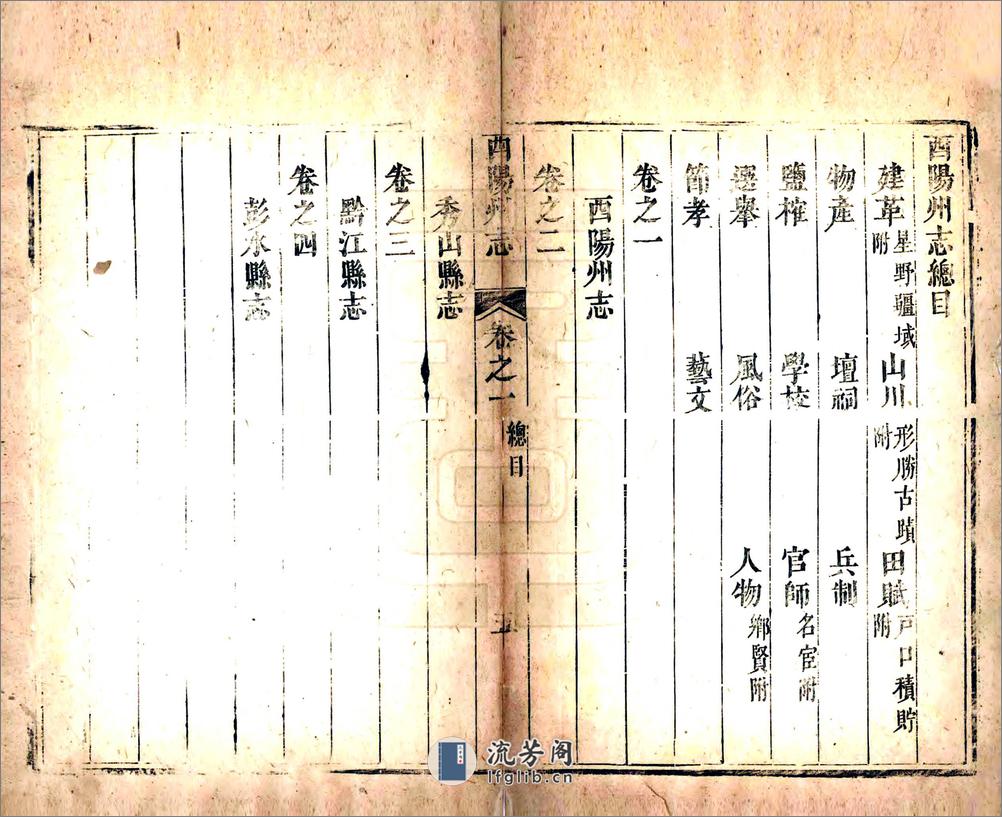 酉陽州志總目
建革星野疆域附 山川形勝古蹟附 田賦戶口積貯附
物產 壇祠 兵制
鹽榷 學校 官師名宦附
選舉 風俗 人物鄉賢附
節孝 藝文
卷之一
酉陽州志
卷之二
酉陽州志 卷之一 總目 五
秀山縣志
卷之三
黔江縣志
卷之四
彭水縣志
流芳阁
lfglib.cn